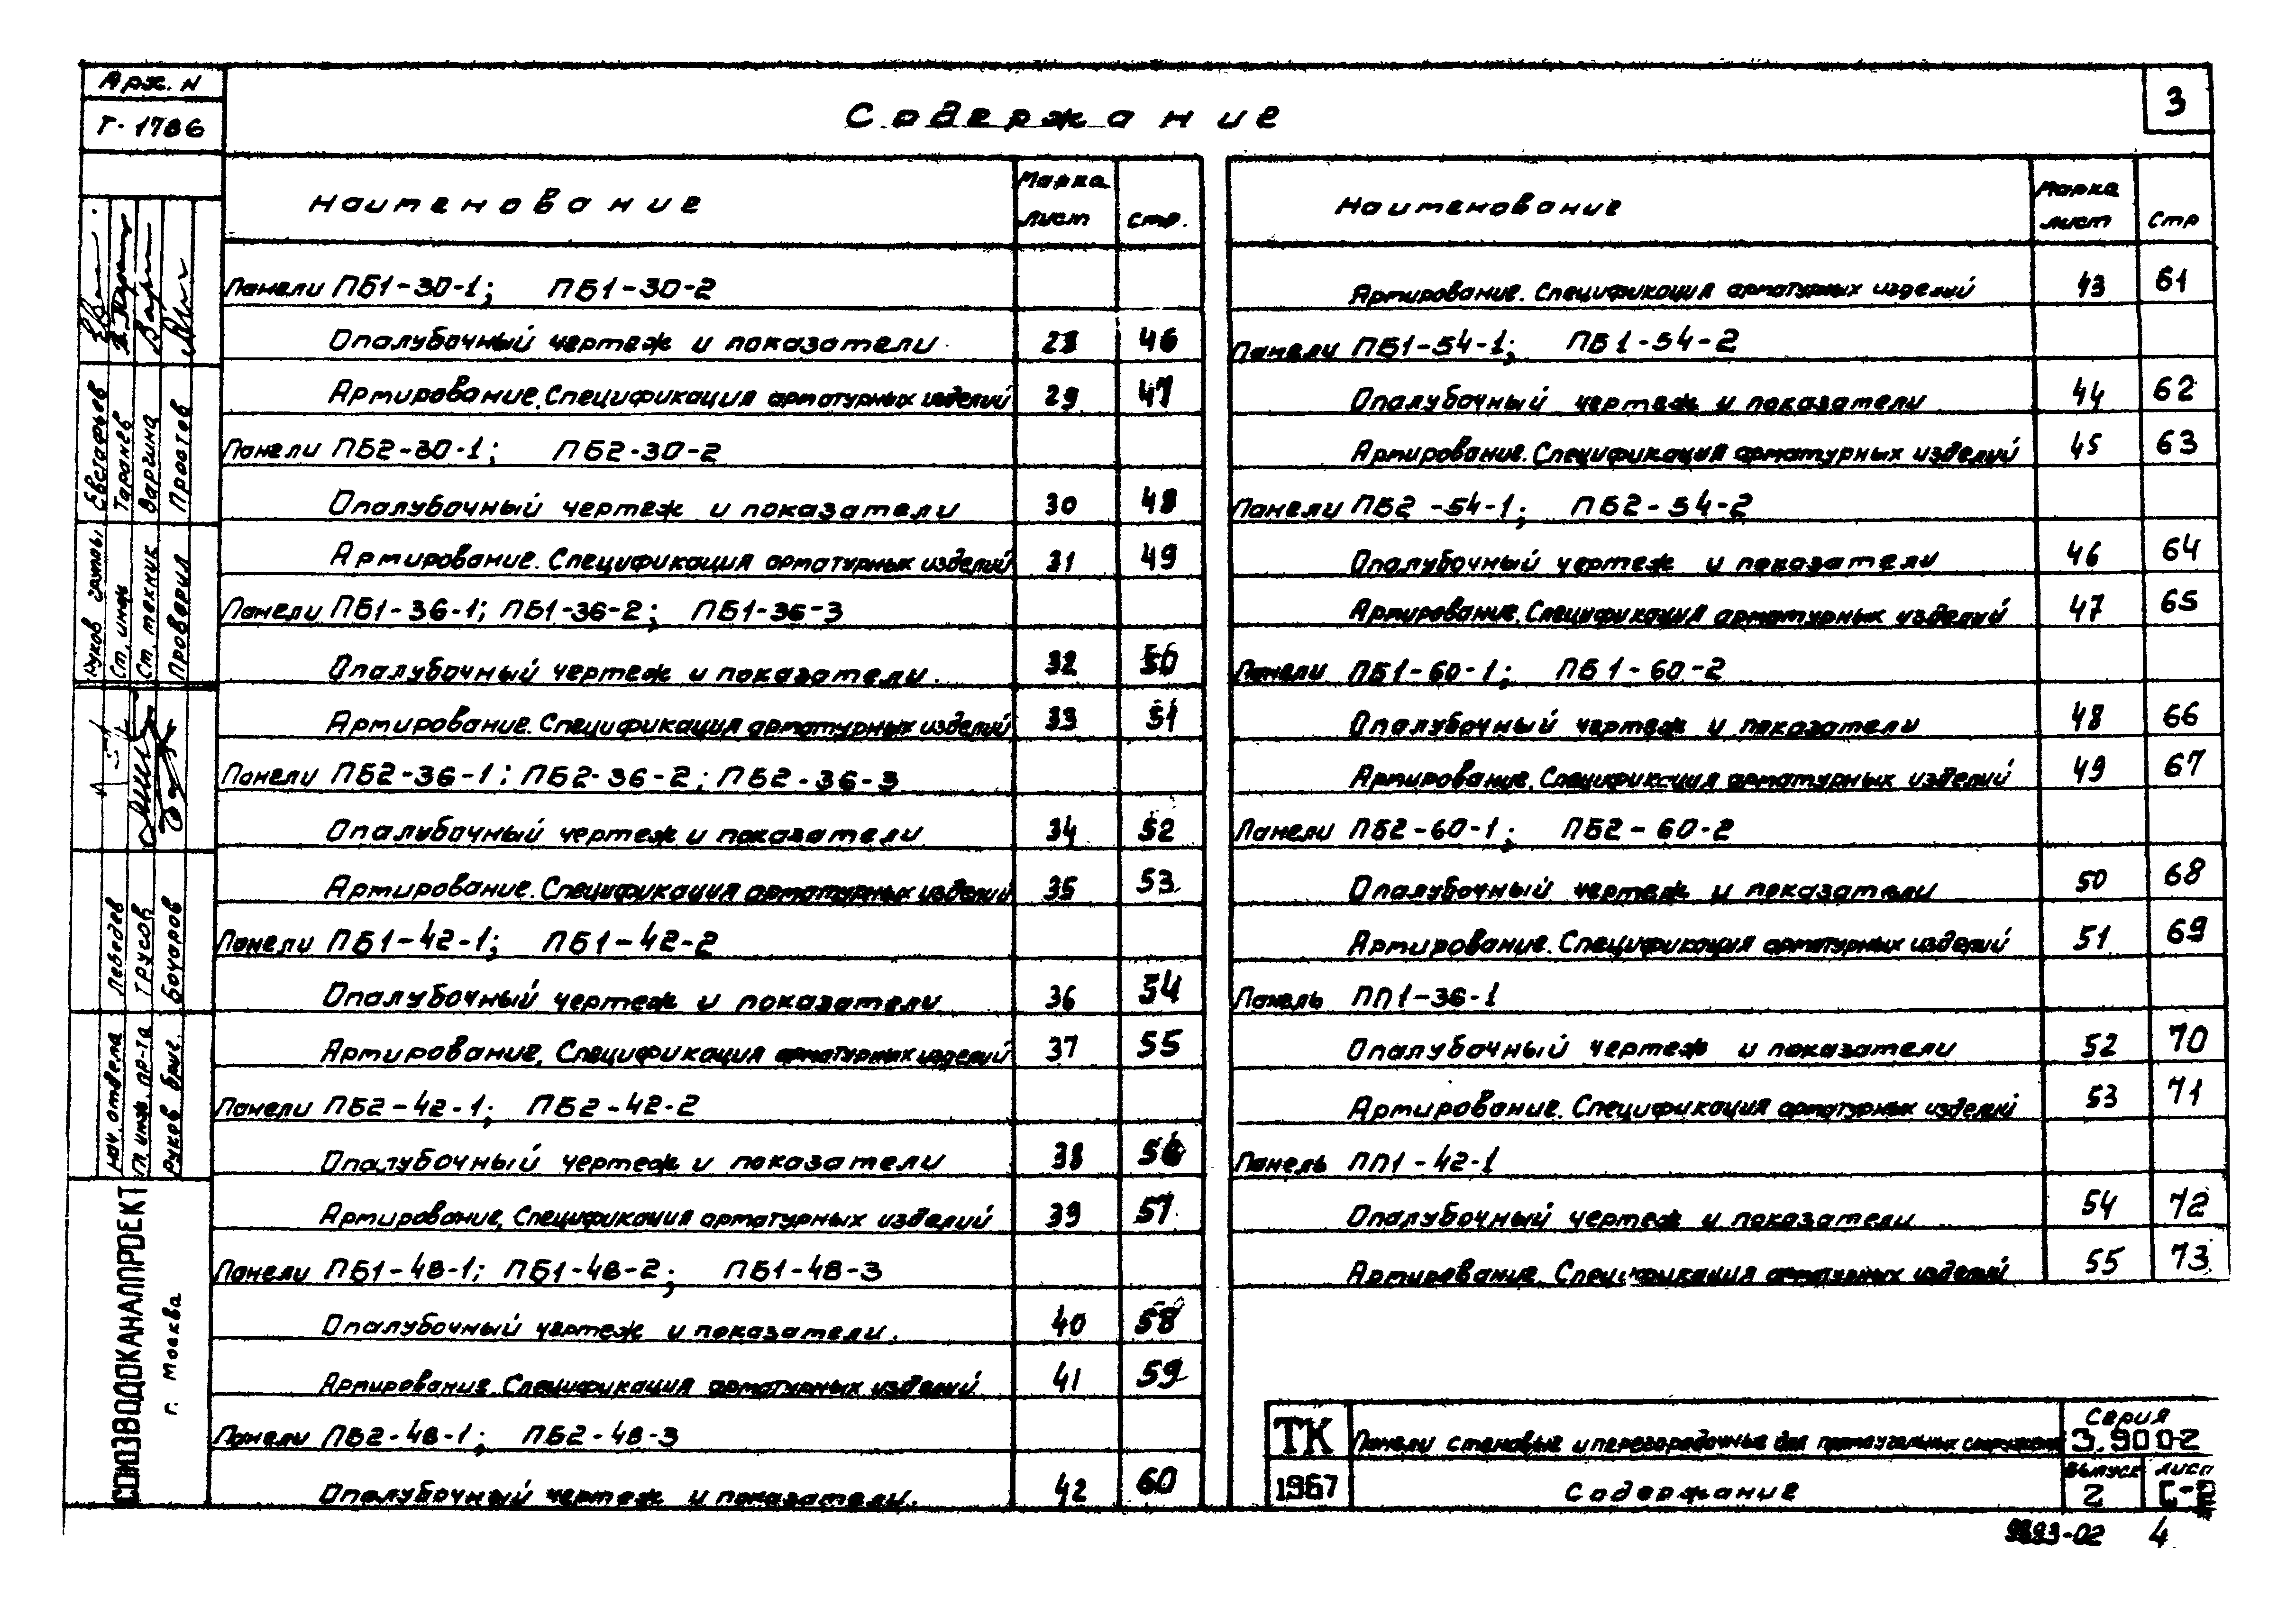 Арх. N
Т-1786
Содержание
3
Наименование
Марка лист
стр.
Панели ПБ1-30-1; ПБ1-30-2
Опалубочный чертеж и показатели 28 46
Армирование. Спецификация арматурных изделий 29 47
Панели ПБ2-30-1; ПБ2-30-2
Опалубочный чертеж и показатели 30 48
Армирование. Спецификация арматурных изделий 31 49
Панели ПБ1-36-1; ПБ1-36-2; ПБ1-36-3
Опалубочный чертеж и показатели. 32 50
Армирование. Спецификация арматурных изделий 33 51
Панели ПБ2-36-1; ПБ2-36-2; ПБ2-36-3
Опалубочный чертеж и показатели 34 52
Армирование. Спецификация арматурных изделий 35 53
Панели ПБ1-42-1; ПБ1-42-2
Опалубочный чертеж и показатели 36 54
Армирование, Спецификация арматурных изделий 37 55
Панели ПБ2-42-1; ПБ2-42-2
Опалубочный чертеж и показатели 38 56
Армирование, Спецификация арматурных изделий 39 57
Панели ПБ1-48-1; ПБ1-48-2; ПБ1-48-3
Опалубочный чертеж и показатели. 40 58
Армирование. Спецификация арматурных изделий 41 59
Панели ПБ2-48-1; ПБ2-48-3
Опалубочный чертеж и показатели. 42 60
Наименование
Марка лист
Стр
Армирование. Спецификация арматурных изделий 43 61
Панели ПБ1-54-1; ПБ1-54-2
Опалубочный чертеж и показатели 44 62
Армирование. Спецификация арматурных изделий 45 63
Панели ПБ2-54-1; ПБ2-54-2
Опалубочный чертеж и показатели 46 64
Армирование. Спецификация арматурных изделий 47 65
Панели ПБ1-60-1; ПБ1-60-2
Опалубочный чертеж и показатели 48 66
Армирование. Спецификация арматурных изделий 49 67
Панели ПБ2-60-1; ПБ2-60-2
Опалубочный чертеж и показатели 50 68
Армирование. Спецификация арматурных изделий 51 69
Панель ПП1-36-1
Опалубочный чертеж и показатели 52 70
Армирование. Спецификация арматурных изделий 53 71
Панель ПП1-42-1
Опалубочный чертеж и показатели 54 72
Армирование. Спецификация арматурных изделий 55 73
Руков группы Евстафьев
Ст. инж Таранев
Ст. техник Варгина
Проверил Протов
нач. отдела Лебедев
гл. инж. пр-та Трусов
Руков. бриг. Бочаров
СОЮЗВОДОКАНАЛПРОЕКТ
г. Москва
ТК
1967
Панели стеновые и перегородочные для прямоугольных сооружений
Содержание
Серия
3.900-2
Выпуск
2
лист
4